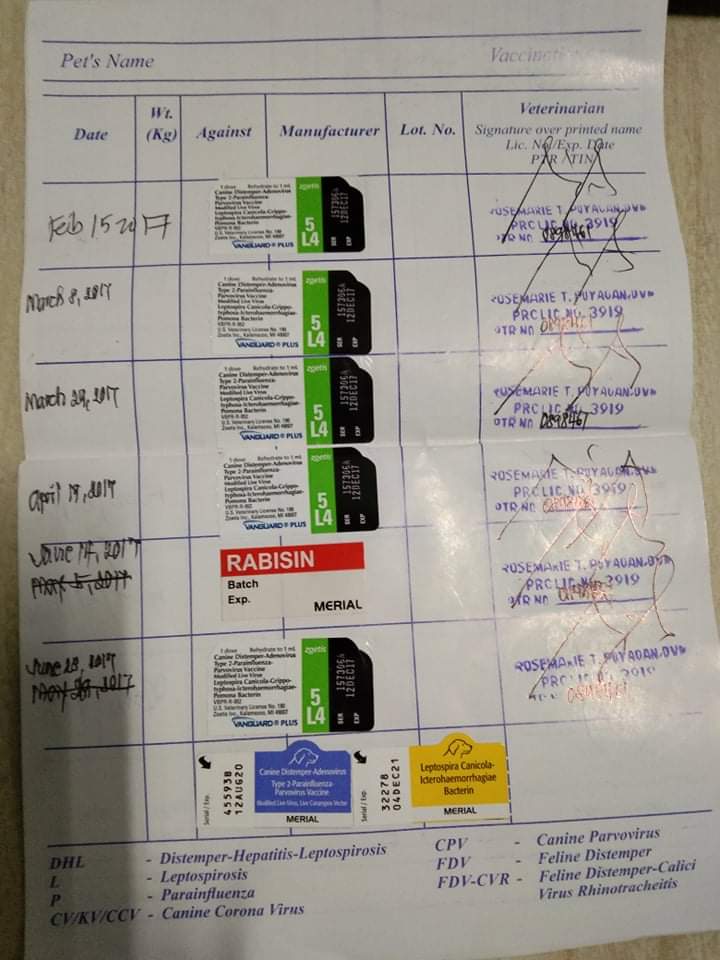 Pet's Name
Date
Wt.
(Kg)
Against
Manufacturer
Lot. No.
Veterinarian
Signature over printed name
Lic. No/Exp. Date
PTR / TIN
Feb 15 2017
1 dose Rehydrate to 1 mL
Canine Distemper-Adenovirus
Type 2-Parainfluenza-
Parvovirus Vaccine
Modified Live Virus
Leptospira Canicola-Grippo-
typhosa-Icterohaemorrhagiae-
Pomona Bacterin
VBPR-R-952
U.S. Veterinary License No. 190
Zoetis Inc., Kalamazoo, MI 49007
VANGUARD® PLUS
zoetis
5
L4
SER 157306A
EXP 12DEC17
ROSEMARIE T. PUYAOAN, DVM
PRC LIC. NO. 3919
PTR NO 0898461
March 8, 2017
1 dose Rehydrate to 1 mL
Canine Distemper-Adenovirus
Type 2-Parainfluenza-
Parvovirus Vaccine
Modified Live Virus
Leptospira Canicola-Grippo-
typhosa-Icterohaemorrhagiae-
Pomona Bacterin
VBPR-R-952
U.S. Veterinary License No. 190
Zoetis Inc., Kalamazoo, MI 49007
VANGUARD® PLUS
zoetis
5
L4
SER 157306A
EXP 12DEC17
ROSEMARIE T. PUYAOAN, DVM
PRC LIC. NO. 3919
PTR NO 0898461
March 29, 2017
1 dose Rehydrate to 1 mL
Canine Distemper-Adenovirus
Type 2-Parainfluenza-
Parvovirus Vaccine
Modified Live Virus
Leptospira Canicola-Grippo-
typhosa-Icterohaemorrhagiae-
Pomona Bacterin
VBPR-R-952
U.S. Veterinary License No. 190
Zoetis Inc., Kalamazoo, MI 49007
VANGUARD® PLUS
zoetis
5
L4
SER 157306A
EXP 12DEC17
ROSEMARIE T. PUYAOAN, DVM
PRC LIC. NO. 3919
PTR NO 0898461
April 19, 2017
1 dose Rehydrate to 1 mL
Canine Distemper-Adenovirus
Type 2-Parainfluenza-
Parvovirus Vaccine
Modified Live Virus
Leptospira Canicola-Grippo-
typhosa-Icterohaemorrhagiae-
Pomona Bacterin
VBPR-R-952
U.S. Veterinary License No. 190
Zoetis Inc., Kalamazoo, MI 49007
VANGUARD® PLUS
zoetis
5
L4
SER 157306A
EXP 12DEC17
ROSEMARIE T. PUYAOAN, DVM
PRC LIC. NO. 3919
PTR NO
June 14, 2017
RABISIN
Batch
Exp.
MERIAL
ROSEMARIE T. PUYAOAN, DVM
PRC LIC. NO. 3919
PTR NO
June 28, 2017
1 dose Rehydrate to 1 mL
Canine Distemper-Adenovirus
Type 2-Parainfluenza-
Parvovirus Vaccine
Modified Live Virus
Leptospira Canicola-Grippo-
typhosa-Icterohaemorrhagiae-
Pomona Bacterin
VBPR-R-952
U.S. Veterinary License No. 190
Zoetis Inc., Kalamazoo, MI 49007
VANGUARD® PLUS
zoetis
5
L4
SER 157306A
EXP 12DEC17
ROSEMARIE T. PUYAOAN, DVM
PRC LIC. NO. 3919
0898461
Serial / Exp.
45593B
12AUG20
Canine Distemper-Adenovirus
Type 2-Parainfluenza-
Parvovirus Vaccine
Modified Live Virus, Live Canarypox Vector
MERIAL
Serial / Exp.
32278
04DEC21
Leptospira Canicola-
Icterohaemorrhagiae
Bacterin
MERIAL
DHL - Distemper-Hepatitis-Leptospirosis
L - Leptospirosis
P - Parainfluenza
CV/KV/CCV - Canine Corona Virus
CPV - Canine Parvovirus
FDV - Feline Distemper
FDV-CVR - Feline Distemper-Calici
Virus Rhinotracheitis